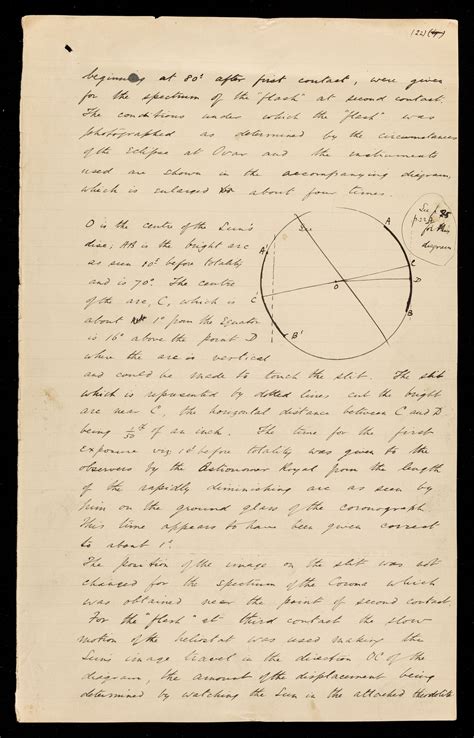 (22)
beginning at 80s after first contact, were given
for the spectrum of the "flash" at second contact.
The conditions under which the "flash" was
photographed as determined by the circumstances
of the Eclipse at Ovar and the instruments
used are shown in the accompanying diagram,
which is enlarged about four times.
See
p.22A
for this
diagram
A
A'
C
C'
D
O
B
B'
O is the centre of the Sun's
disc; AB is the bright arc
as seen 10s before totality
and is 70°. The centre
of the arc, C, which is
about 1° from the Equator
is 16° above the point D
where the arc is vertical
and could be made to touch the slit. The slit
which is represented by dotted lines cut the bright
arc near C, the horizontal distance between C and D
being 1/50th of an inch. The time for the first
exposure viz before totality was given to the
observers by the Astronomer Royal from the length
of the rapidly diminishing arc as seen by
him on the ground glass of the coronograph
This time appears to have been given correct
to about 1s.
The position of the image on the slit was not
changed for the spectrum of the Corona which
was obtained near the point of second contact.
For the "flash" at third contact the slow
motion of the heliostat was used making the
Suns image travel in the direction OC of the
diagram, the amount of the displacement being
determined by watching the Sun in the attached theodolite